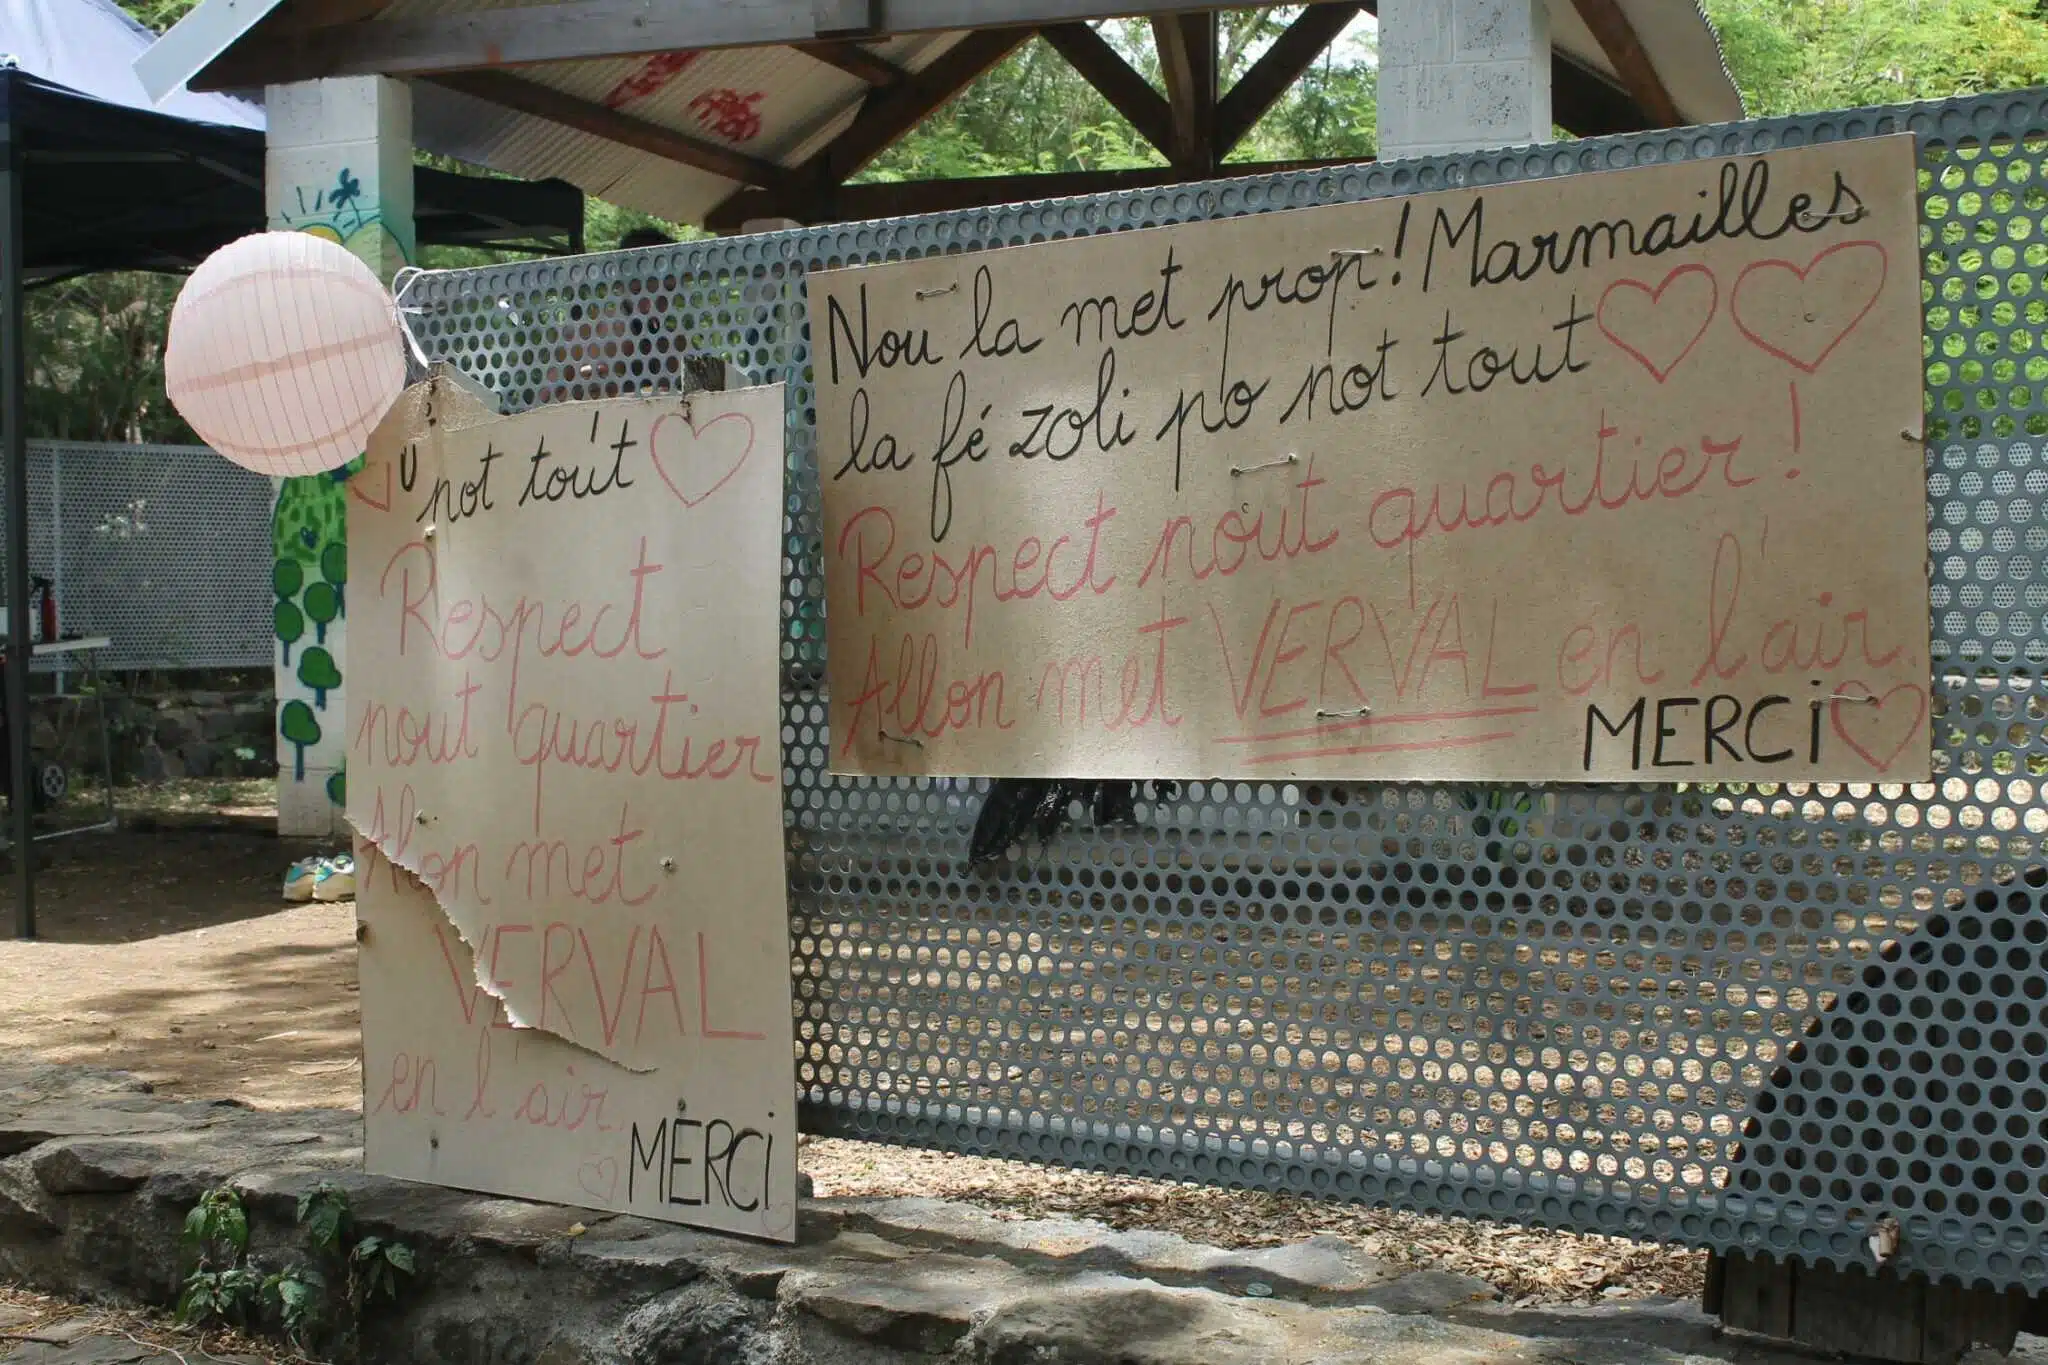 not tout
Respect
nout quartier
Allon met
VERVAL
en l'air.
MERCi
Nou la met prop! Marmailles
la fé zoli po not tout
Respect nout quartier!
Allon met VERVAL en l'air.
MERCi